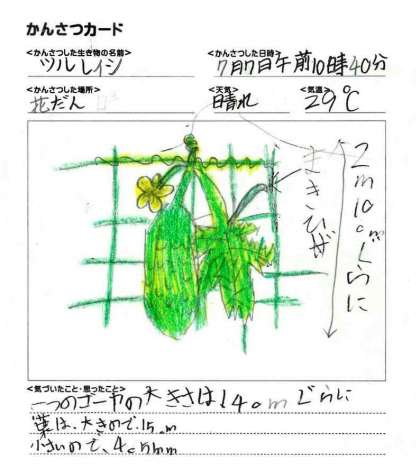 かんさつカード
<かんさつした生き物の名前>
ツルレイシ
<かんさつした日時>
7月7日午前10時40分
<かんさつした場所>
花だん
<天気>
晴れ
<気温>
29℃
まきひげ
2m10cmぐらい
<気づいたこと・思ったこと>
一つのゴーヤの大きさは14cmぐらいに
葉は、大きので15cm
小さいので、4cm5mm